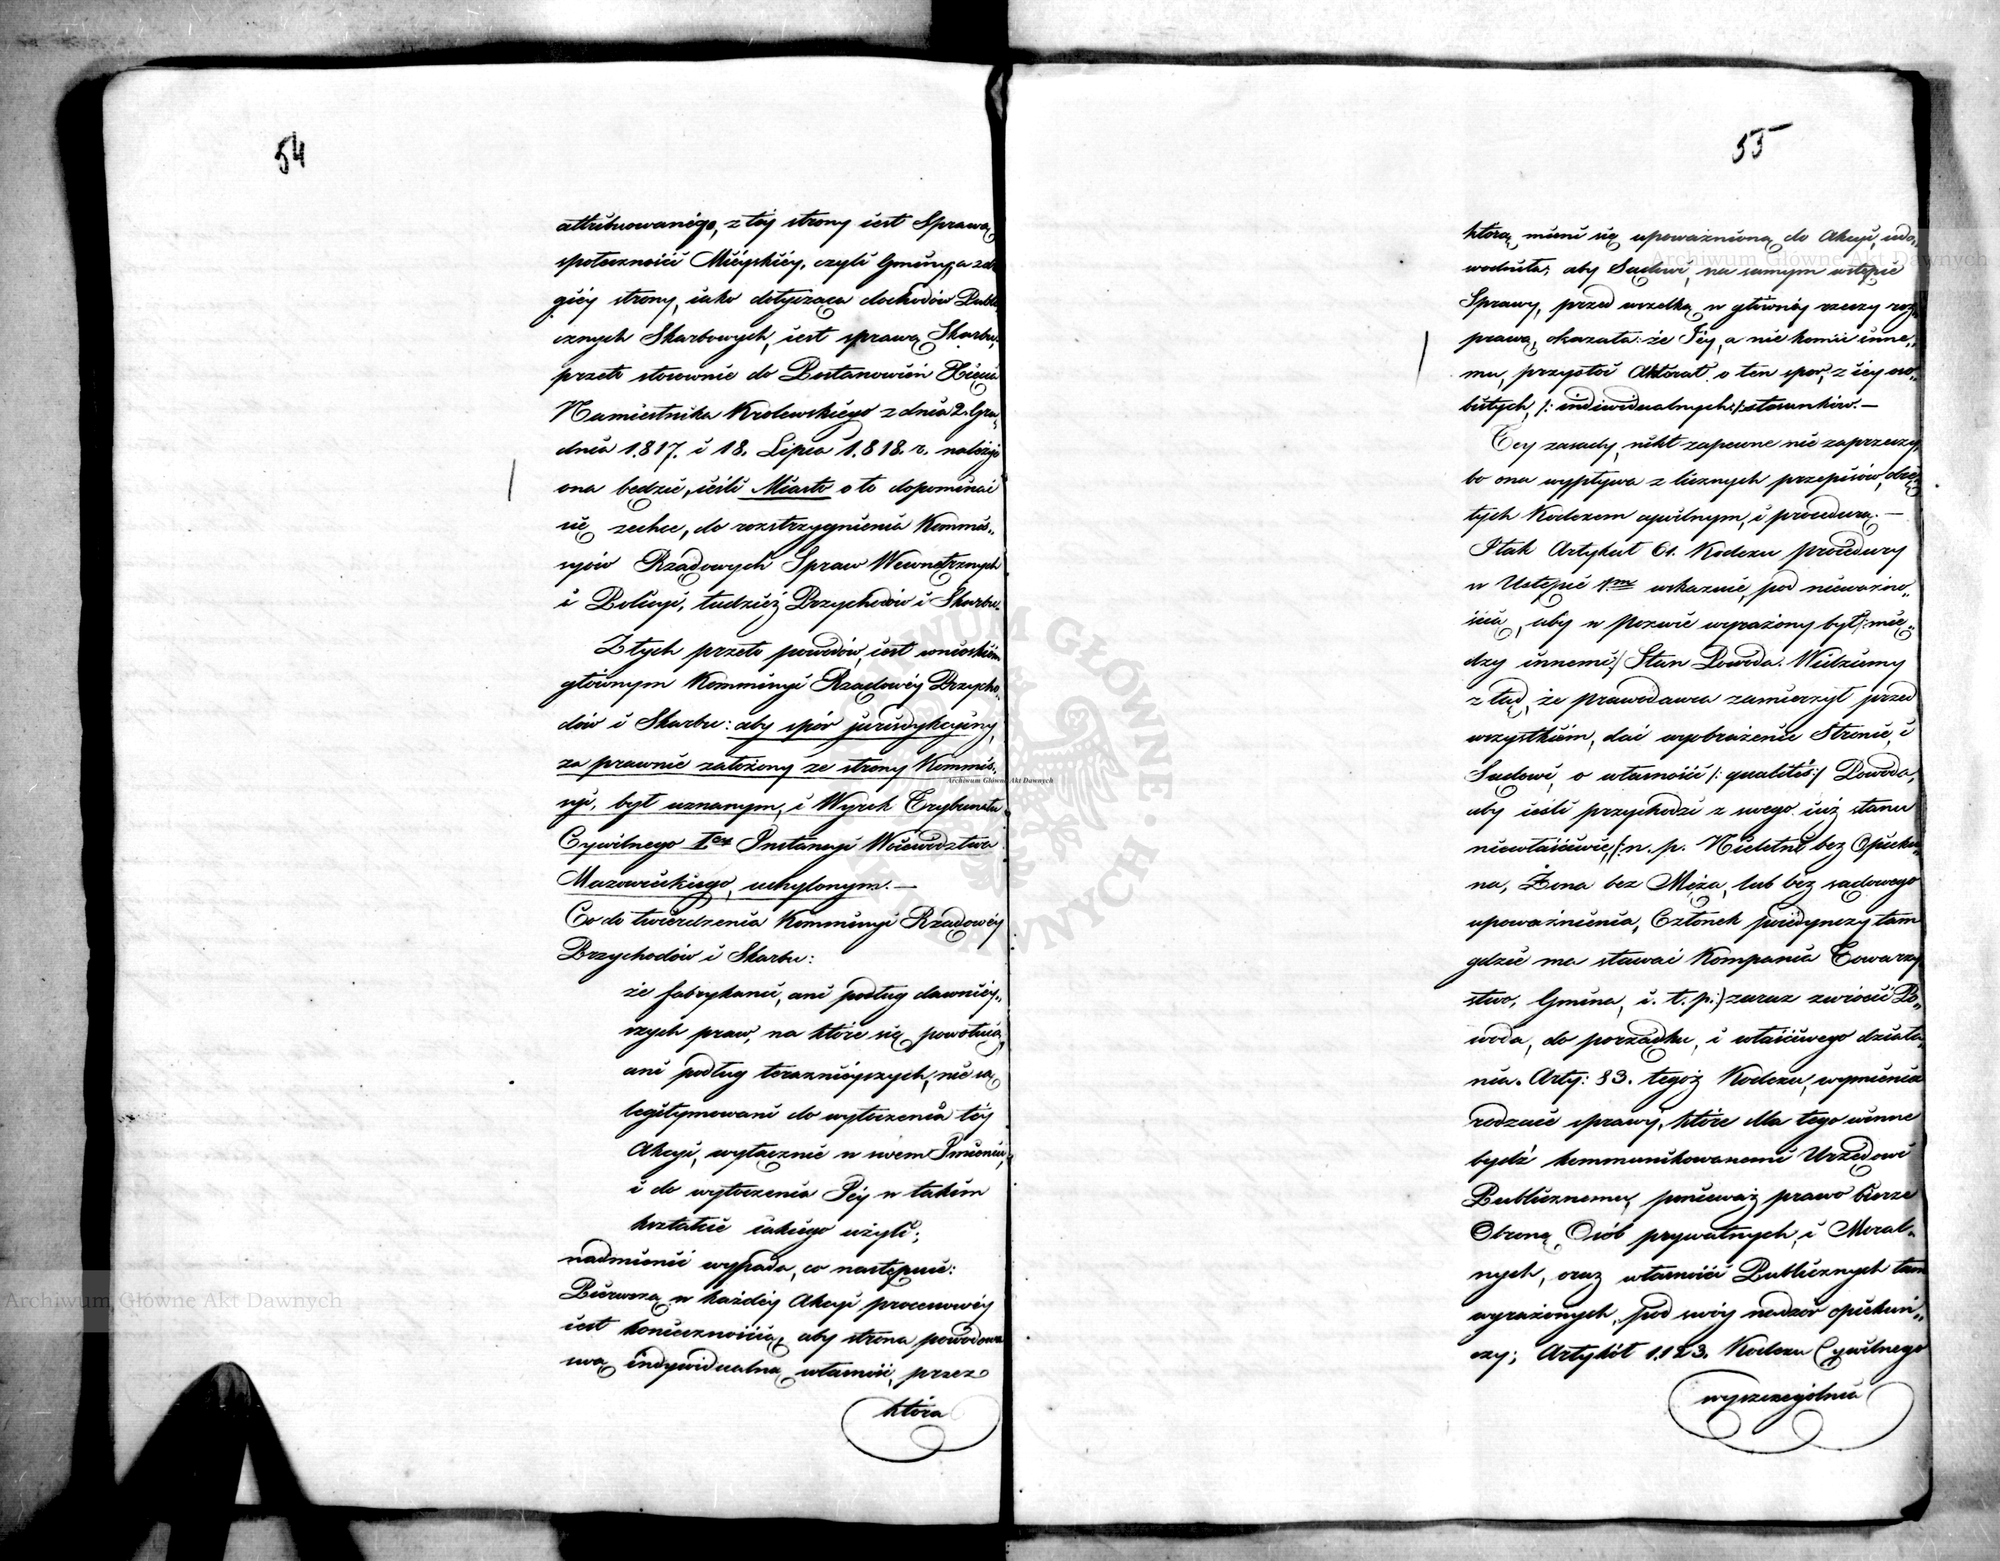 54
attribuowanégo, z téy strony iest Sprawą
społeczności Mieyskiéy, czyli Gminy, a z dru
giéy strony, iako dotycząca dochodów Publi
cznych Skarbowych, iest sprawą Skarbu,
przeto stosownie do Postanowień Xięcia
Namiestnika Krolewskiego z dnia 2. Gru,,
dnia 1817. i 18. Lipca 1818. r. należéć
ona będzie, ieśli Miasto o to dopominać
się zechce, do rozstrzygnienia Kommis,,
syiów Rządowych Spraw Wewnętrznych
i Policyi, tudzież Przychodów i Skarbu.
Z tych przeto powodów, iest wnioskiem
głównym Kommissyi Rządowéy Przycho,,
dów i Skarbu: aby spór jurisdykcyiny,
za prawnie założony ze strony Kommis,,
syi, był uznanym, i Wyrok Trybunału
Cywilnego Iéy Instancyi Woiewództwa
Mazowieckiego, uchylonym. —
Co do twierdzenia Kommissyi Rządowéy
Przychodów i Skarbu:
że fabrykanci, ani podług dawniéy,,
szych praw, na które się powołuią,
ani podług teraznieyszych, nie są
legitymowani do wytoczenia téy
Akcyi, wyłącznie w swem Imieniu,
i do wytoczenia Iéy w takim
kształcie iakiego użyli;
nadmienić wypada, co następuie:
Pierwszą w każdéy Akcyi processowéy
iest koniecznością, aby strona powodowa
swą indywidualną własność, przez
która
55
którą mieni się upoważnioną do Akcyi, udo,,
wodniła; aby Sądowi, na samym wstępie
Sprawy, przed wszelką w głównéy rzeczy roz,,
prawą, okazała: że Iéy, a nie komu inne,,
mu, przystoi Aktorat o ten spór, z iéy oso,,
bistych, /: indiwidualnych :/ stosunków. —
Tey zasady, nikt zapewne nie zaprzeczy,
bo ona wypływa z licznych przepisów, obię
tych Kodexem cywilnym, i procedurą. —
I tak Artykuł 61. Kodexu procedury
w Ustępie 1mo wskazuie, pod nieważno,,
ścią, aby w Pozwie wyrażony był /: mię,,
dzy innemi :/ Stan Powoda. Widziemy
z tąd, że prawodawca zamierzył przed
wszystkiem, dać wyobrażenie Stronie, i
Sądowi, o własności /: qualités :/ Powoda,
aby ieśli przychodzi z swego iuż stanu
niewłaściwie, /: n. p. Nieletni bez Opieku,,
na, Żona bez Męża, lub bez sądowego
upoważnienia, Członek poiedynczy tam
gdzie ma stawać Kompania Towarzy
stwo, Gmina, i. t. p. :/ zaraz zwrócić Po,,
woda, do porządku, i właściwego działa,,
nia. Arty: 83. tegoż Kodexu, wymienia
rodzaie sprawy, które dla tego winne
bydź kommunikowanemi Urzędowi
Publicznemu, ponieważ prawo bierze
Obronę Osób prywatnych, i Moral,,
nych, oraz własności Publicznych tam
wyrażonych, pod swóy nadzór opiekuń,,
czy; Artykuł 1123. Kodexu Cywilnego
wyszczególnia